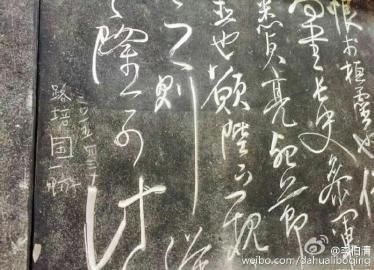 恨於桓靈也侍
書長史參軍
悉貞亮死節
也願陛下親
之則漢
隆可計
路培国
@李伯清
weibo.com/dahualiboqing